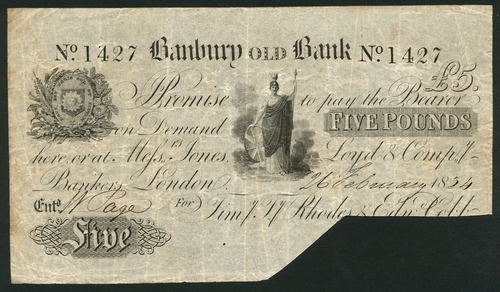 No. 1427 Banbury OLD Bank No. 1427
£5.
I Promise to pay the Bearer
on Demand FIVE POUNDS
here, or at Messrs. Jones, Loyd & Compy.
Bankers London. 26 February 1834
Entd. Page For Timy. Rhodes & Edwd. Cobb
Five